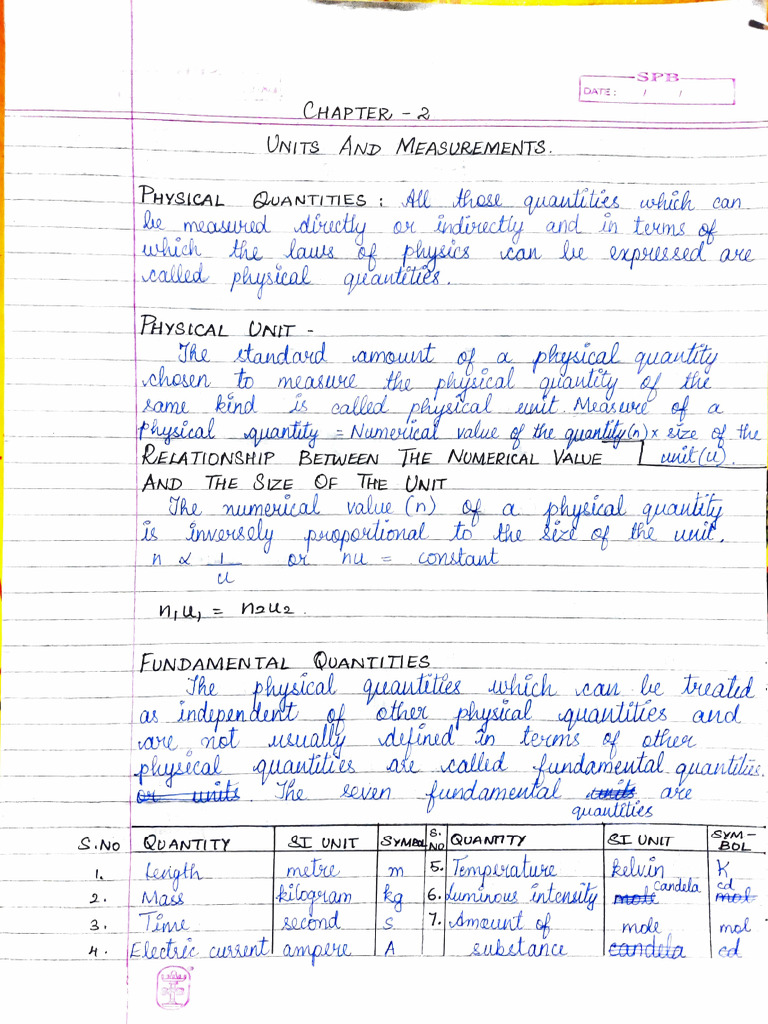 SPB
DATE: / /
CHAPTER - 2
UNITS AND MEASUREMENTS.
PHYSICAL QUANTITIES : All those quantities which can
be measured directly or indirectly and in terms of
which the laws of physics can be expressed are
called physical quantities.
PHYSICAL UNIT -
The standard amount of a physical quantity
chosen to measure the physical quantity of the
same kind is called physical unit. Measure of a
physical quantity = Numerical value of the quantity(n) × size of the
unit(u).
RELATIONSHIP BETWEEN THE NUMERICAL VALUE
AND THE SIZE OF THE UNIT
The numerical value (n) of a physical quantity
is inversely proportional to the size of the unit.
n ∝ 1/u or nu = constant
n₁u₁ = n₂u₂.
FUNDAMENTAL QUANTITIES
The physical quantities which can be treated
as independent of other physical quantities and
are not usually defined in terms of other
physical quantities are called fundamental quantities.
or units. The seven fundamental units are
quantities
S.NO QUANTITY SI UNIT SYMBOL S.NO QUANTITY SI UNIT SYM-BOL
1. Length metre m 5. Temperature kelvin K
2. Mass kilogram kg 6. Luminous intensity mole candela cd mol
3. Time second s 7. Amount of mole mol
4. Electric current ampere A substance candela cd